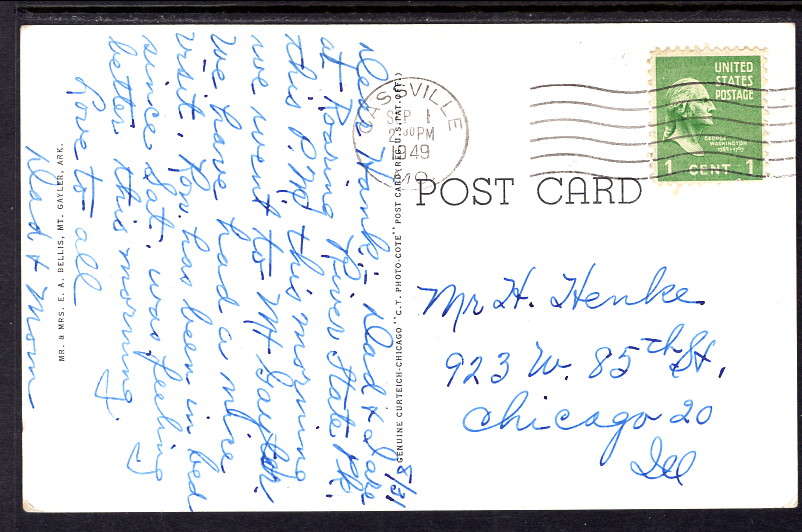 8/31
Dear Hank;- Dad & I are
at Roaring River State Pk.
this P.M. this morning
we went to Mt Gayler.
We have had a nice
visit. Ron. has been in bed
since Sat. was feeling
better this morning.
Love to all
Dad & Mom
MR. & MRS. E. A. BELLIS, MT. GAYLER, ARK.
GENUINE CURTEICH-CHICAGO "C.T. PHOTO-COTE" POST CARD (REG. U.S. PAT. OFF.)
CASSVILLE
SEP 1
2 30 PM
1949
MO.
UNITED
STATES
POSTAGE
GEORGE
WASHINGTON
1789-1797
1 CENT 1
POST CARD
Mr H. Henke
923 W. 85th St.
Chicago 20
Ill